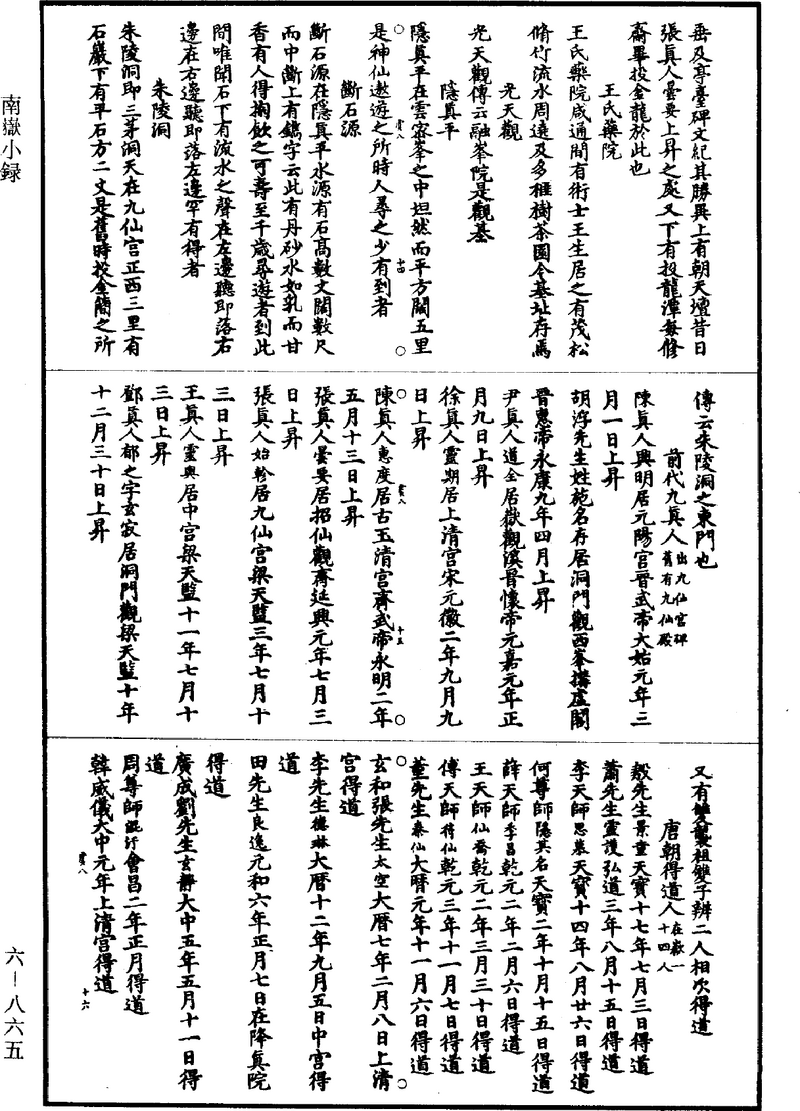 南嶽小録
垂及亭臺碑文紀其勝異上有朝天壇昔日
張真人曇要上昇之處又下有投龍潭每修
齋畢投金龍於此也
王氏藥院
王氏藥院咸通間有術士王生居之有茂松
脩竹流水周遶及多榧樹茶園今基址存焉
光天觀
光天觀傳云融峯院是觀基
隱真平
隱真平在雲密峯之中坦然而平方闊五里
是神仙遨遊之所時人尋之少有到者
斷石源
斷石源在隱真平水源有石高數丈闊數尺
而中斷上有鐫字云此有丹砂水如乳而甘
香有人得掬飲之可壽至千歲尋遊者到此
問唯聞石下有流水之聲在左邊聽即落右
邊在右邊聽即落左邊罕有得者
朱陵洞
朱陵洞即三茅洞天在九仙宮正西三里有
石巖下有平石方二丈是舊時投金簡之所
傳云朱陵洞之東門也
前代九真人出九仙宮碑舊有九仙殿
陳真人興明居元陽宮晉武帝大始元年三
月一日上昇
胡浮先生姓施名存居洞門觀西峯搆虛閣
晉惠帝永康九年四月上昇
尹真人道全居嶽觀溪晉懷帝元嘉元年正
月九日上昇
徐真人靈期居上清宮宋元徽二年九月九
日上昇
陳真人惠度居古玉清宮齊武帝永明二年
五月十三日上昇
張真人曇要居招仙觀齊延興元年七月三
日上昇
張真人始軫居九仙宮梁天監三年七月十
三日上昇
王真人靈輿居中宮梁天監十一年七月十
三日上昇
鄧真人郁之字玄寂居洞門觀梁天監十年
十二月三十日上昇
又有雙襲祖雙子辨二人相次得道
唐朝得道人在嶽一十四人
殷先生景童天寶十七年七月三日得道
蕭先生靈護弘道三年八月十五日得道
李天師思慕天寶十四年八月廿六日得道
何尊師隱其名天寶二年十月十五日得道
薛天師季昌乾元二年二月六日得道
王天師仙喬乾元二年三月三十日得道
傅天師待仙乾元三年十一月七日得道
董先生奉仙大曆元年十一月六日得道
玄和張先生太空大曆七年二月八日上清
宮得道
李先生德琳大曆十二年九月五日中宮得
道
田先生良逸元和六年正月七日在降真院
得道
廣成劉先生玄靜大中五年五月十一日得
道
周尊師混汙會昌二年正月得道
韓威儀大中元年上清宮得道
十四
十五
十六
六－八六五